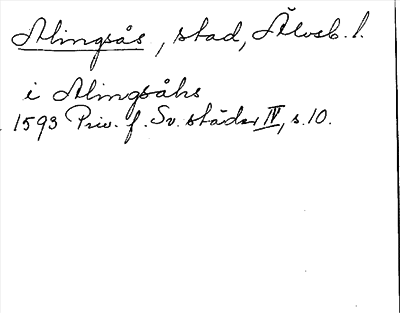 Alingsås, stad, Älvsb. l.
i Alingsåhs
1593 Priv. f. Sv. städer IV, s. 10.